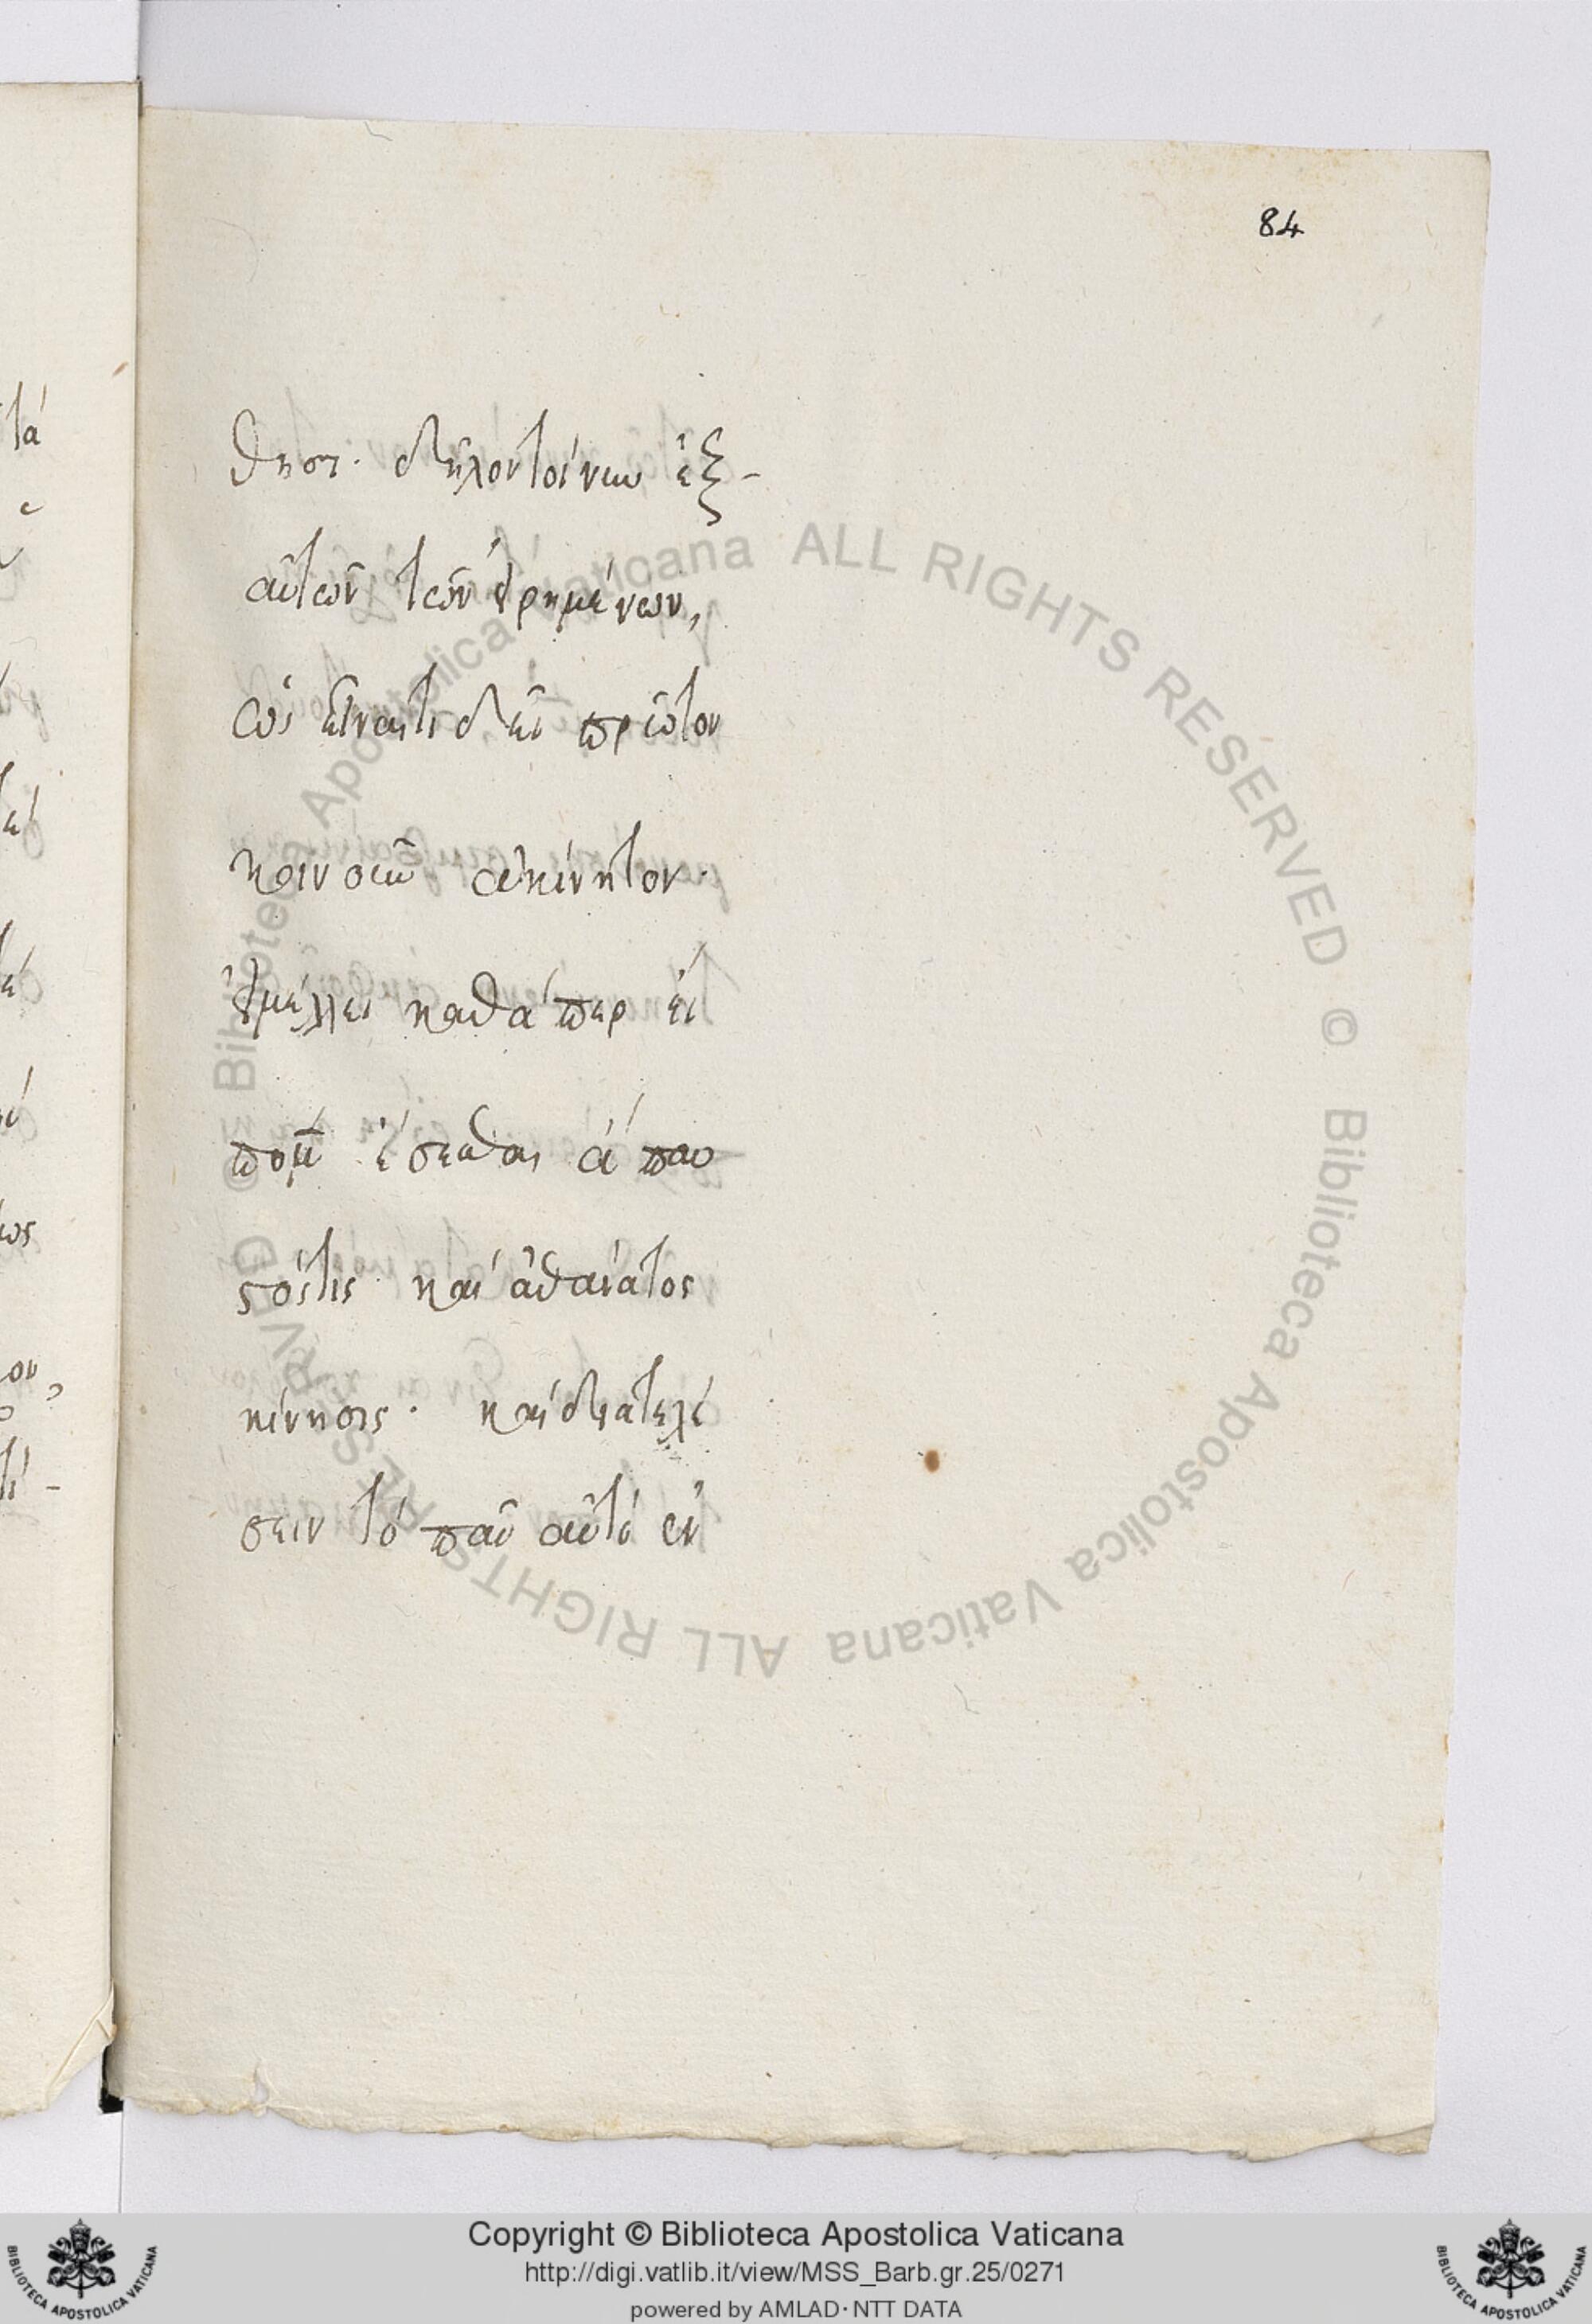 84
θησι. δῆλον τοίνυν ἐξ-
αὐτῶν τῶν εἰρημένων,
ὡς εἶναί τι δεῖ πρῶτον
κινοῦν ἀκίνητον.
εἰ μέλλει καθάπερ εἴ
πομεν ἔσεσθαι ἄπαυ
στός τις καὶ ἀθάνατος
κίνησις. καὶ διατελέ
σειν τὸ πᾶν αὐτὸ ἐν
Copyright © Biblioteca Apostolica Vaticana
http://digi.vatlib.it/view/MSS_Barb.gr.25/0271
powered by AMLAD · NTT DATA
© Biblioteca Apostolica Vaticana ALL RIGHTS RESERVED © Biblioteca Apostolica Vaticana ALL RIGHTS RESERVED
BIBLIOTECA APOSTOLICA VATICANA
BIBLIOTECA APOSTOLICA VATICANA